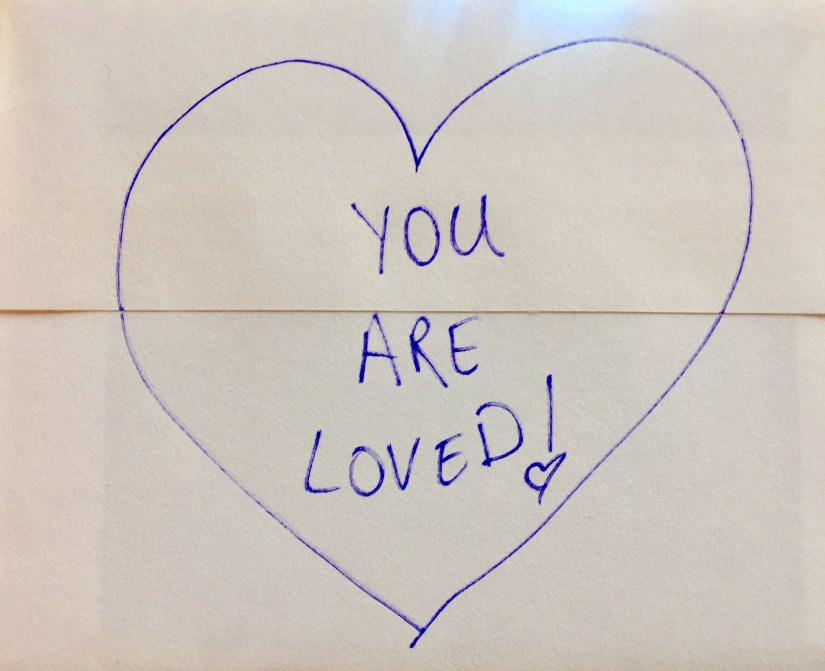 YOU
ARE
LOVED!